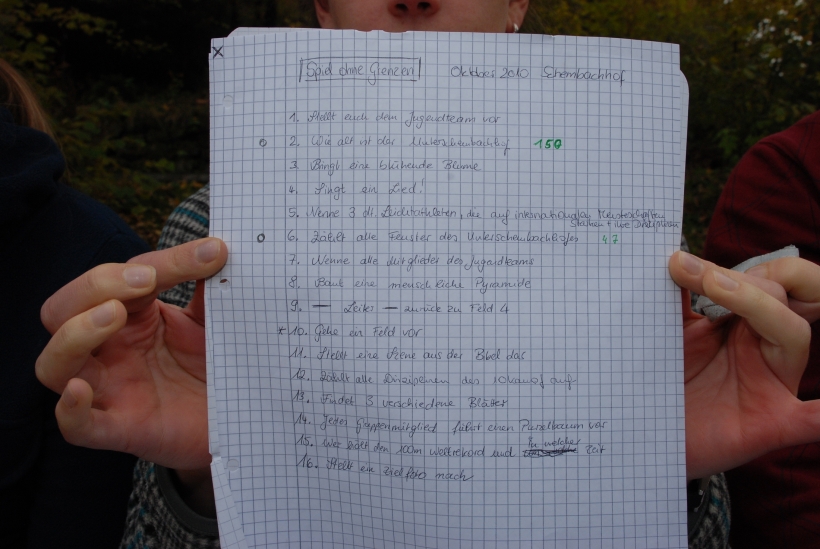 x
Spiel ohne Grenzen Oktober 2010 Schembachhof
1. Stellt euch dem Jugendteam vor
2. Wie alt ist der Unterschembachhof 150
3. Bringt eine blühende Blume
4. Singt ein Lied!
5. Nenne 3 dt. Leichtathleten, die auf internationalen Meisterschaften
starten + ihre Disziplinen
6. Zählt alle Fenster des Unterschembachhofes 47
7. Nenne alle Mitglieder des Jugendteams
8. Baut eine menschliche Pyramide
9. — Leiter — zurück zu Feld 4
* 10. Gehe ein Feld vor
11. Stellt eine Szene aus der Bibel das
12. Zählt alle Disziplinen des 10kampf auf
13. Findet 3 verschiedene Blätter
14. Jedes Gruppenmitglied führt einen Purzelbaum vor
15. Wer hält den 100m Weltrekord und in welcher Zeit
16. Stellt ein Zielfoto nach